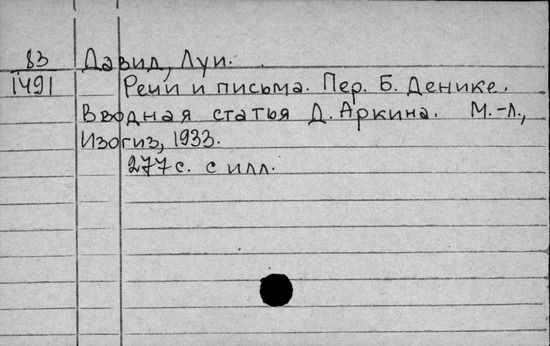 83
1491
Давид, Луи.
Речи и письма. Пер. Б. Денике.
Вводная статья Д. Аркина. М.-Л.,
Изогиз, 1933.
277 с. с илл.